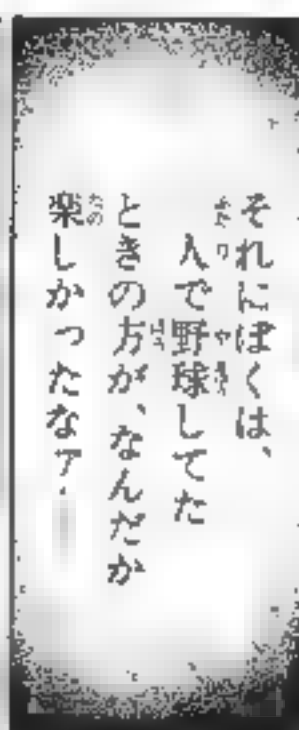 それにぼくは、
二人で野球してた
ときの方が、なんだか
楽しかったなァ…